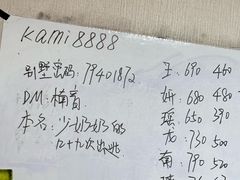 kami8888
别墅密码:79401872
DM:楠音
本名:少奶奶的
九十九次出逃
王:690 460
妍:680 480
瑶:650 390
龙:730 500
菊:790 520